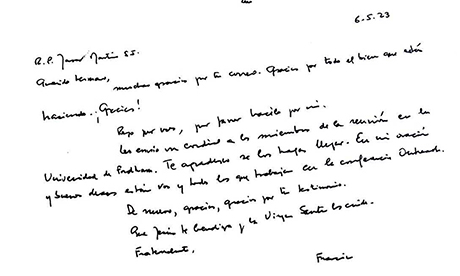 6.5.23
R.P. James Martin S.J.
Querido hermano,
muchas gracias por tu correo. Gracias por todo el bien que estás
haciendo. ¡Gracias!
Rezo por vos, por favor hacelo por mí.
Les envío un cordial a los miembros de la reunión en la
Universidad de Fordham. Te agradezco se los hagas llegar. En mi oración
y buenos deseos están vos y todos los que trabajan en la conferencia Outreach.
De nuevo, gracias, gracias por tu testimonio.
Que Jesús te bendiga y la Virgen Santa los cuide.
Fraternalmente,